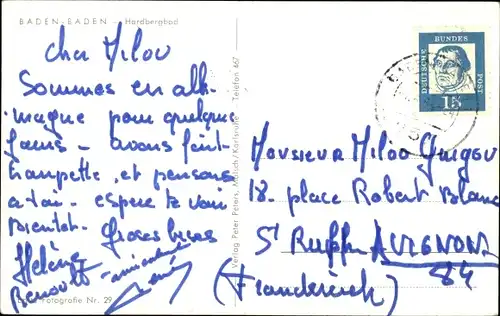 BADEN-BADEN — Hardbergbad
Cher Milou
Sommes en alle-
magne pour quelques
jours - avons fait
trempette et pensons
à toi - espère te voir
bientôt. Grosses bises
Hélène
Benoit amicalement
Foto-Fotografie Nr. 29
Verlag Peter Peters, Malsch/Karlsruhe Telefon 467
DEUTSCHE BUNDES POST
15
Monsieur Milou Guigou
18. place Robert Blanc
St Ruff AVIGNON
84
(Frankreich)